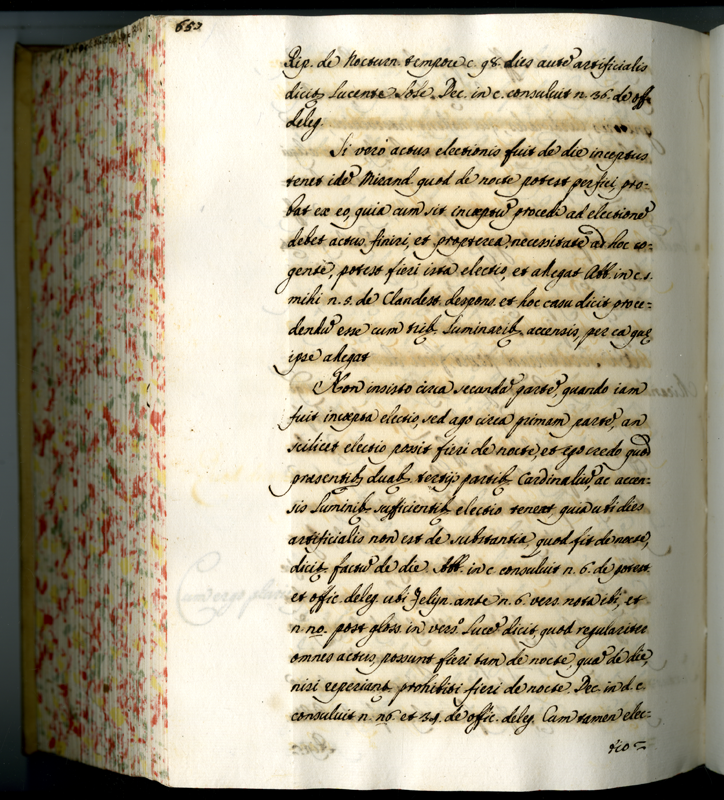 657
Rip. de Nocturn. tempore c. 98. dies autē artificialis
dicit̄ Lucente Sole. Dec. in c. consuluit n. 36. de off.
deleg.
Si verò actus electionis fuit de die inceptus
tenet idē Mirand. quod de nocte potest perfici, pro-
bat ex eo, quia cum sit incæptū procedi ad electionē
debet actus finiri, et propterea necessitate ad hoc co-
gente, potest fieri ista electio, et allegat Abb. in c. 1.
mihi n. 5. de Clandest. despons. et hoc casu dicit proce-
dendū esse cum trib. Luminarib. accensis, per ea quę
ipse allegat
Non insisto circa secundā partē, quando iam
fuit incæpta electio, sed ago circa primam partē, an
scilicet electio possit fieri de nocte, et ego credo quod
præsentib. duab. tertijs partib. Cardinaliū, ac accen-
sis Luminib. sufficientib. electio teneret quia ubi dies
artificialis non est de substantia, quod fit de nocte,
dicit̄ factū de die. Abb. in c. consuluit n. 6. de potest.
et offic. deleg. ubi Felyn. ante n. 6. vers. nota ibi, et
n. no. post gloss. in vers.º Luce, dicit quod regulariter
omnes actus, possunt fieri tam de nocte, quā de die,
nisi reperiant̄ prohibiti fieri de nocte. Dec. in d. c.
consuluit n. 16. et 34. de offic. deleg. Cum tamen elec-
tio
Cum ergo